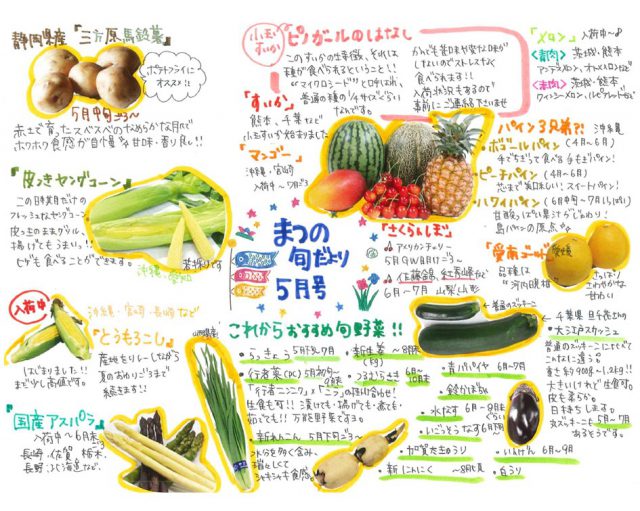 静岡県産『三方原馬鈴薯』
ポテトフライに
オススメ!!
5月中旬ごろ～
赤土で育ったスベスベのなめらかな肌で
ホクホク食感が自慢
『皮つきヤングコーン』
この時期だけの
フレッシュなヤングコーン
皮つきのままグリル、
揚げてもうまい!!
ヒゲも食べることができます。
沖縄・愛知
入荷中
沖縄・宮崎・長崎など
『とうもろこし』
はじまりました!!
まだ少し高値です。
産地をリレーしながら
夏のおわりごろまで
続きます!!
『国産アスパラ』
入荷中～6月末
長崎、佐賀、栃木、
長野、北海道など。
小玉すいか
『ピノガールのはなし』
このすいかの特徴、それは
種が食べられるということ!!
"マイクロシード"と呼ばれ、
普通の種の1/4サイズぐらい
なんです。
かんでも苦味や変な味が
しないのでストレスなく
食べられます!!
入荷状況もあるので
事前にご連絡下さいませ
『すいか』
熊本、千葉など
小玉すいか始まりました
『マンゴー』
沖縄・宮崎
入荷中～7月ごろ
まつの
旬だより
5月号
『さくらんぼ』
アメリカンチェリー
5月GWあけごろ～
佐藤錦、紅秀峰など
6月～7月 山梨、山形
『メロン』入荷中
<青肉> 茨城、熊本
アンデスメロン、オトメメロンなど
<赤肉> 茨城、熊本
クインシーメロン、ルピアレッドなど
パイン3兄弟?! 沖縄
・ボゴールパイン (4月～6月)
手でちぎって食べる手もぎパイン!
・ピーチパイン (4月～6月)
芯まで美味しい!スイートパイン!
・ハワイパイン (6月中旬～7月15日頃)
甘酸っぱい果汁がじゅわり!
島パインの原点
『愛南ゴールド』
愛媛
品種は
"河内晩柑"
さっぱり
さわやかな
甘わい
これからおすすめ旬野菜!!
・らっきょう 5月下旬～7月
・行者菜(DC) 5月初旬～
「行者ニンニク」×「ニラ」の掛け合わせ!
生食も可!! 漬けても・揚げても・煮ても・
茹でても!! 万能野菜ですョ。
・新れんこん 5月下旬ごろ～
水分を多く含み、
瑞々しくて
シャキシャキ食感。
・新生姜 ～8月末
(5kg)
・つるむらさき 6月～10月末
・青パパイヤ 6月～7月
・鈴かぼちゃ
・水なす 6月～8月末ぐらい
・いごっそうなす 6月下旬～
・加賀太きゅうり
・新にんにく ～8月頃
・いんげん 6月～9月
・白うり
普通のズッキーニ
千葉県
・大江戸ズッキーニ
普通のズッキーニにくらべて
こんなに違う。
重さ約900g～1.2kg!!
大きいけれど生食可
皮も柔らか。
日持ちします。
丸ズッキーニも5月～7月
あるそうです。